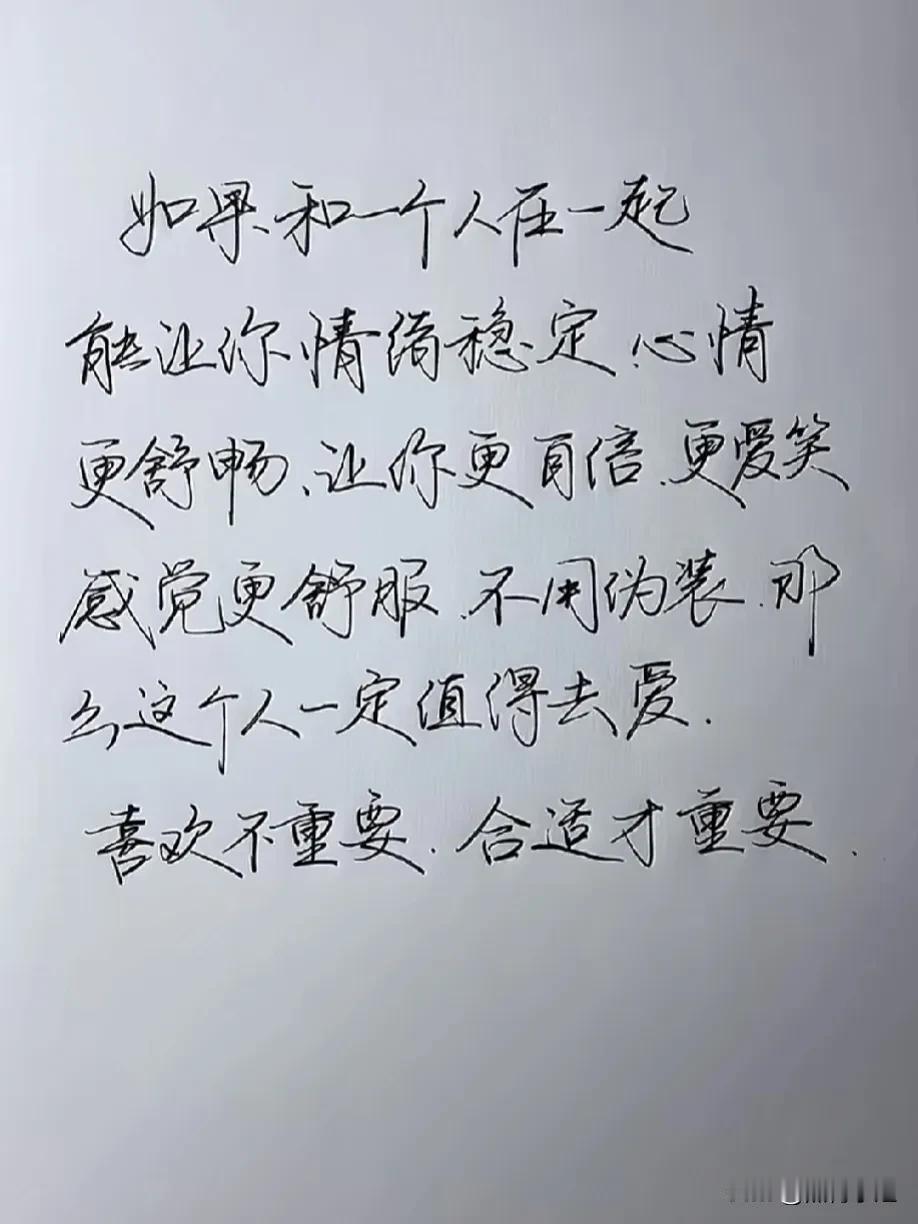 如果、和一个人在一起
能让你、情绪稳定、心情
更舒畅、让你更自信、更爱笑
感觉更舒服、不用伪装、那
么这个人一定值得去爱.
喜欢不重要.合适才重要.